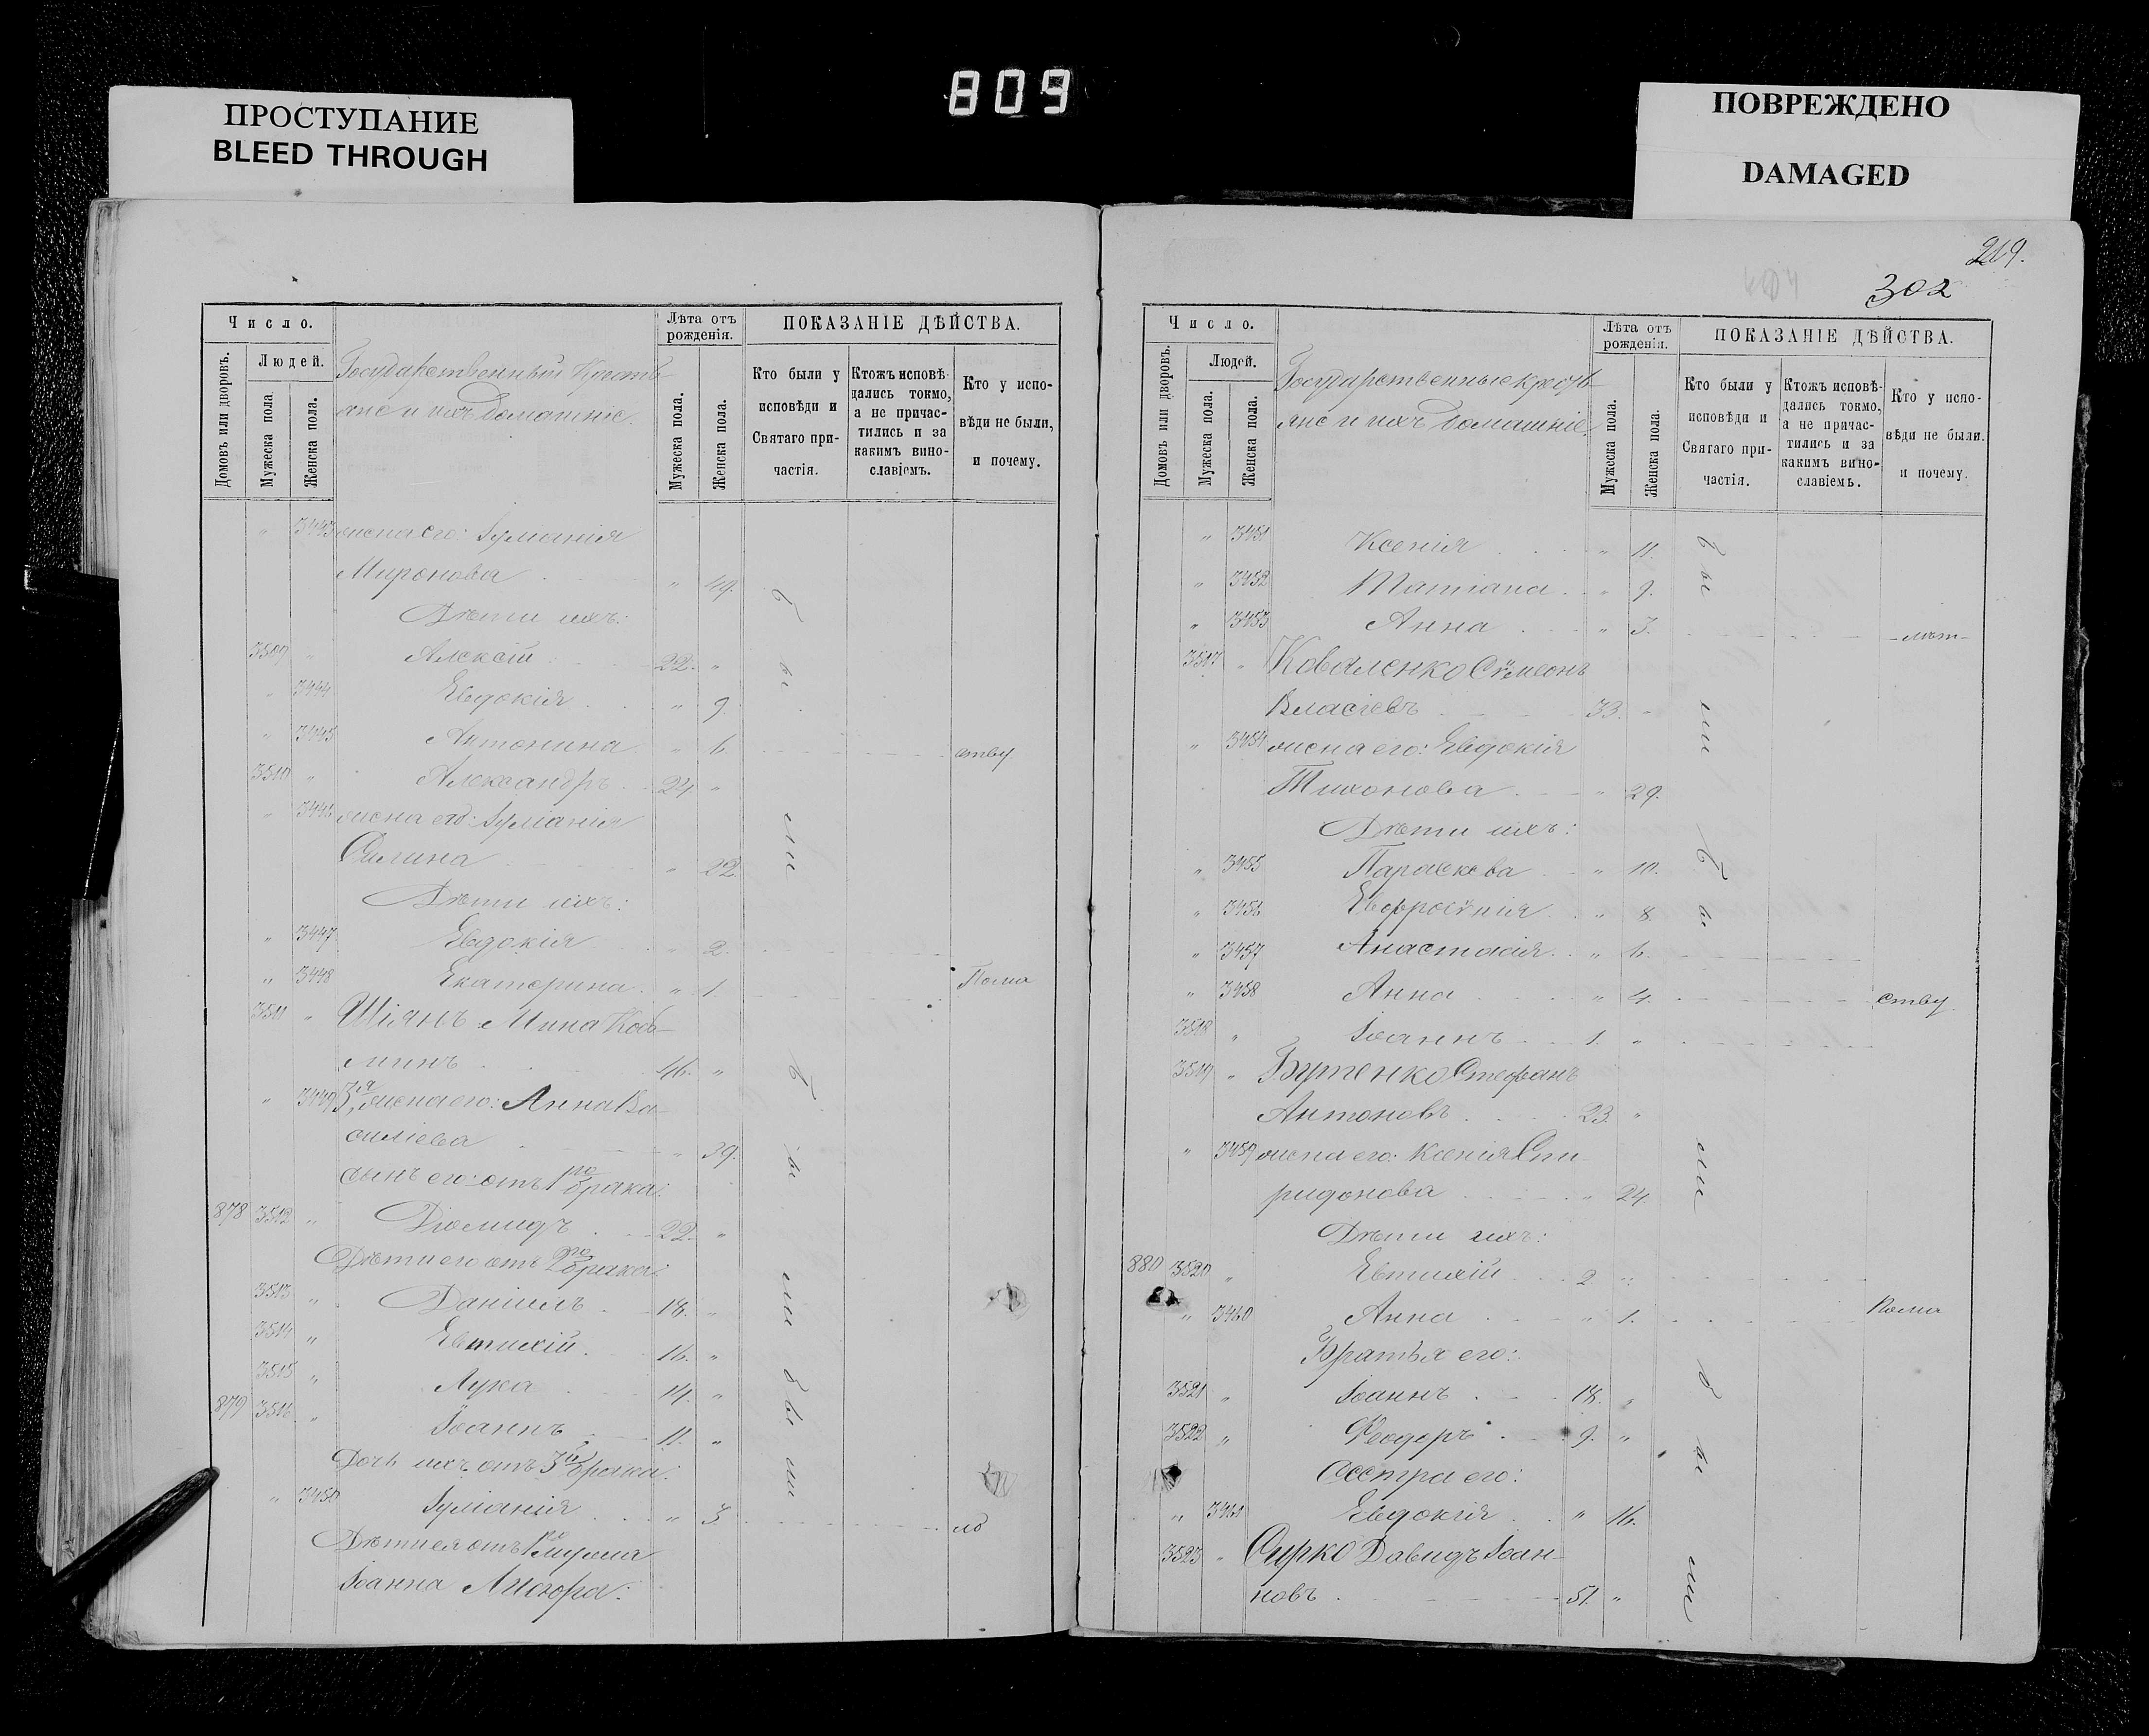 809
ПРОСТУПАНИЕ
BLEED THROUGH
ПОВРЕЖДЕНО
DAMAGED
Число.
Людей.
Домовъ или дворовъ.
Мужеска пола
Женска пола.
Государственныи Кресть-
яне и ихъ домашніе.
Лѣта отъ рожденія.
Мужеска пола.
Женска пола.
ПОКАЗАНІЕ ДѢЙСТВА.
Кто были у исповѣди и Святаго при-частія.
Ктожъ исповѣ-дались токмо, а не причас-тились и за какимъ вино-славіемъ.
Кто у испо-вѣди не были, и почему.
" 3443 жена его: Іуліанія
Миронова " 44.
Дѣти ихъ:
3509 " Алексій 22. "
" 3444 Евдокія " 9.
" 3445 Антонина " 6. ству
3510 " Александръ 24 "
" 3446 жена его: Іуліанія
Силина " 22.
Дѣти ихъ:
" 3447 Евдокія " 2.
" 3448 Екатерина " 1. Пома
3511 " Шіянъ Мина Кось-
минъ 46. "
" 3449 3я жена его: Анна Ва-
силіева " 39.
сынъ его: отъ 1го брака:
878 3512 " Діомидъ 22. "
Дѣти его отъ 2го брака:
3513 " Даніилъ 18. "
3514 " Евтихій 16. "
3515 " Лука 14. "
879 3516 " Іоаннъ 11. "
Дочь ихъ отъ 3го брака:
" 3450 Іуліанія " 3 ло
Дѣти ея отъ 1го мужа
Іоанна
были
были
были
219.
302
404
Число.
Людей.
Домовъ или дворовъ.
Мужеска пола.
Женска пола.
Государственные кресть-
яне и ихъ домашніе.
Лѣта отъ рожденія.
Мужеска пола.
Женска пола.
ПОКАЗАНІЕ ДѢЙСТВА.
Кто были у исповѣди и Святаго при-частія.
Ктожъ исповѣ-дались токмо, а не причас-тились и за какимъ вино-славіемъ.
Кто у испо-вѣди не были. и почему.
" 3451 Ксенія " 11.
" 3452 Татіана " 9.
" 3453 Анна " 3. лѣт
3517 " Коваленко Сѵмеонъ
Власіевъ 33. "
" 3454 жена его: Евдокія
Тихонова " 29.
Дѣти ихъ:
" 3455 Параскева " 10.
" 3456 Евфросѵнія " 8.
" 3457 Анастасія " 6.
" 3458 Анна " 4. ству
3518 " Іоаннъ 1. "
3519 " Бутенко Стефанъ
Антоновъ 23. "
" 3459 жена его: Ксенія Спи-
ридонова " 24.
Дѣти ихъ:
880 3520 " Евтихій 2 "
" 3460 Анна " 1. Пома
Братья его:
3521 " Іоаннъ 18. "
3522 " Ѳеодоръ 9. "
Сестра его:
" 3461 Евдокія " 16.
3523 " Сирко Давидъ Іоан-
новъ 51. "
были
были
были